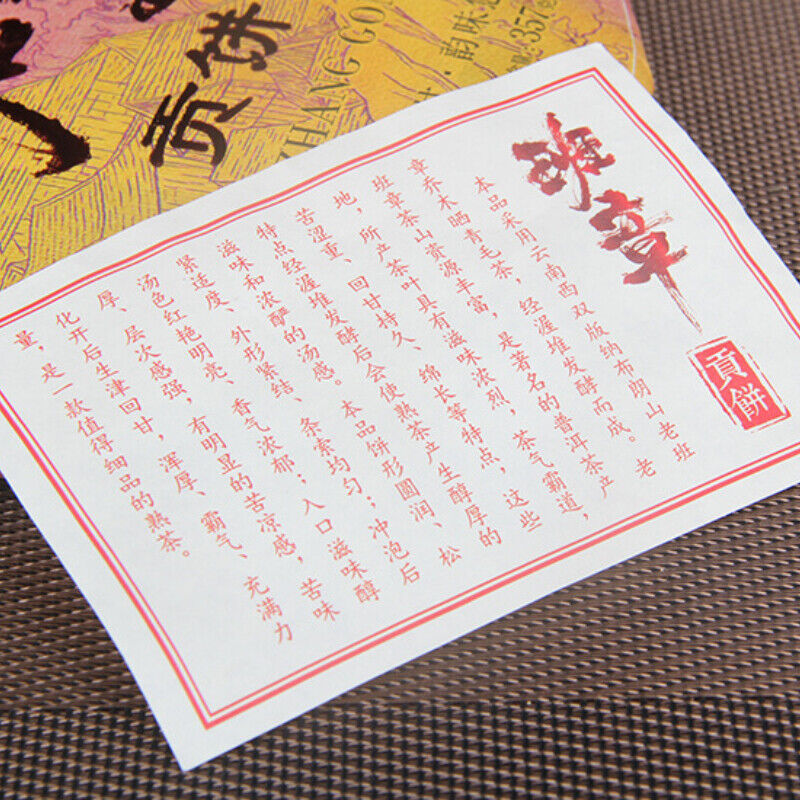 贡饼
ZHANG GO
韵味
357克
班章
貢餅
本品采用云南西双版纳布朗山老班
章乔木晒青毛茶，经渥堆发酵而成。老
班章茶山资源丰富，是著名的普洱茶产
地，所产茶叶具有滋味浓烈，茶气霸道，
苦涩重、回甘持久、绵长等特点，这些
特点经渥堆发酵后会使熟茶产生醇厚的
滋味和浓酽的汤感。本品饼形圆润、松
紧适度、外形紧结、条索均匀；冲泡后
汤色红艳明亮、香气浓郁；入口滋味醇
厚、层次感强，有明显的苦凉感，苦味
化开后生津回甘，浑厚、霸气、充满力
量，是一款值得细品的熟茶。